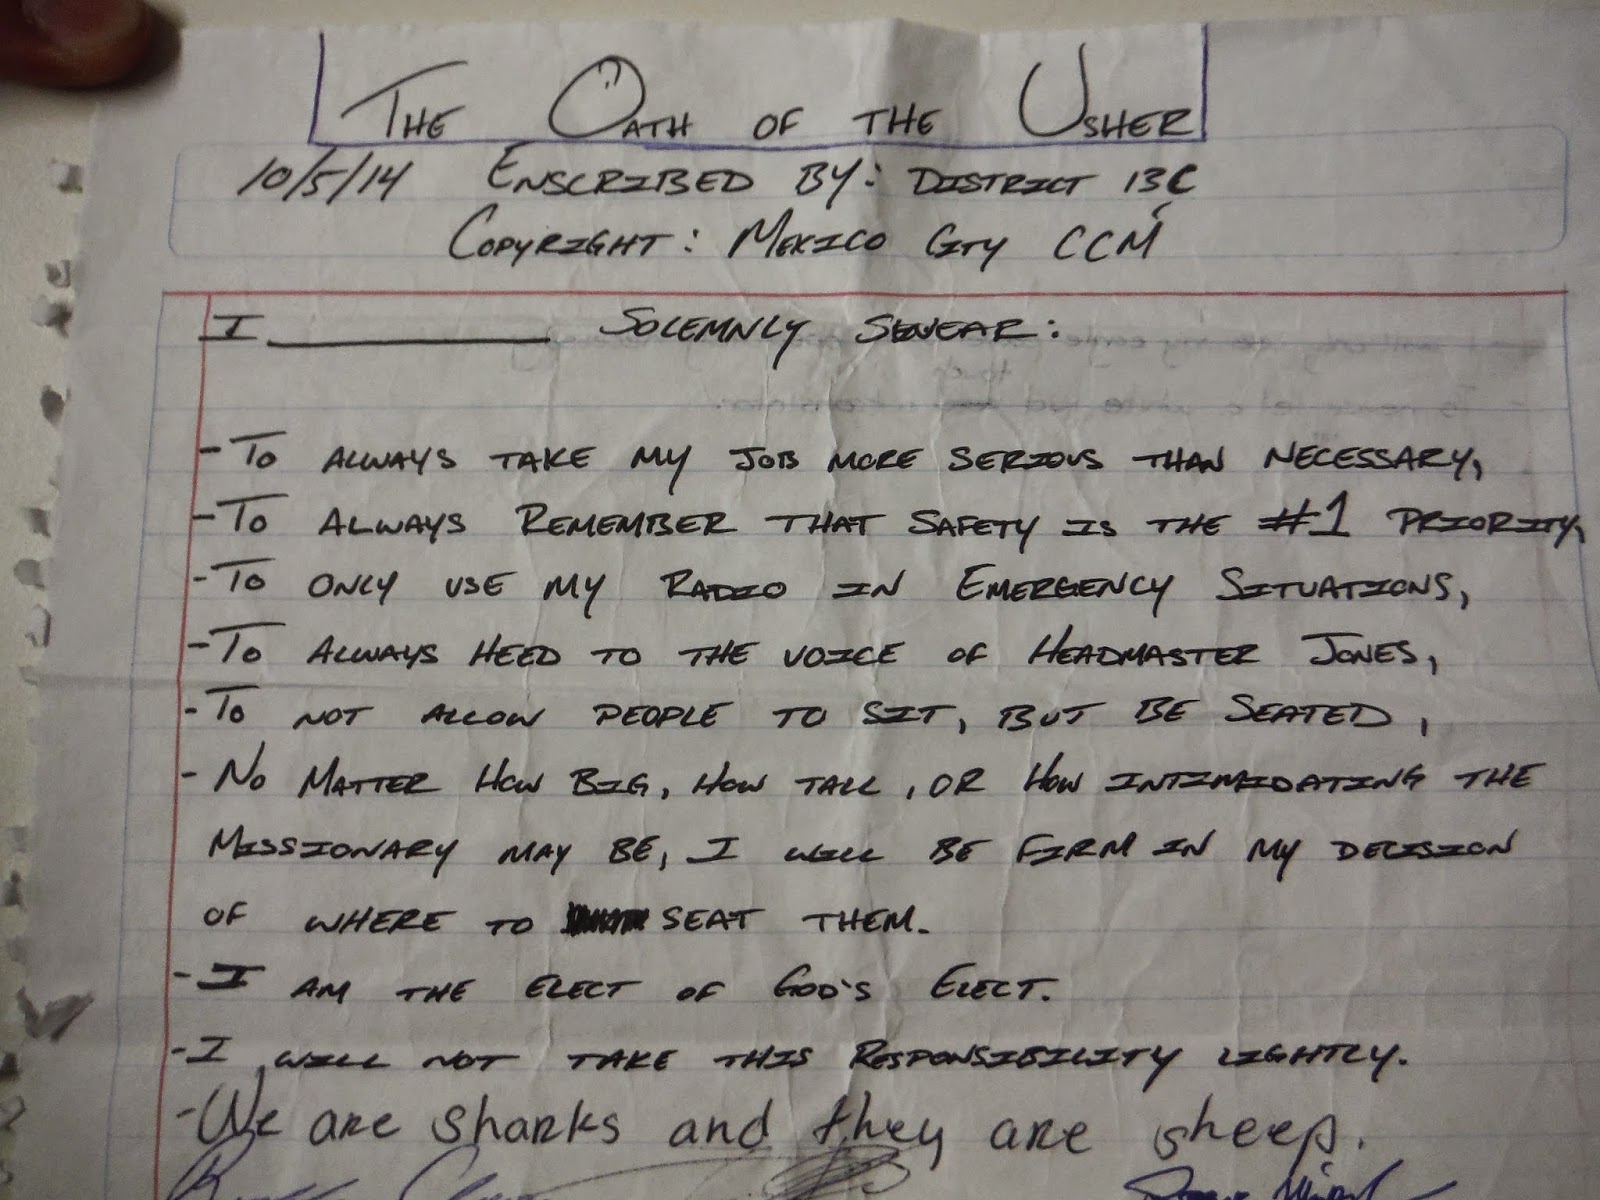 The Oath of the Usher
10/5/14 Enscribed By: District 13C
Copyright: Mexico City CCM
I __________ Solemnly Swear:
- To always take my job more serious than necessary,
- To always remember that safety is the #1 priority,
- To only use my radio in Emergency Situations,
- To always heed to the voice of Headmaster Jones,
- To not allow people to sit, but be seated,
- No matter how big, how tall, or how intimidating the
missionary may be, I will be firm in my decision
of where to seat them.
- I am the elect of God's Elect.
- I will not take this responsibility lightly.
- We are sharks and they are sheep.